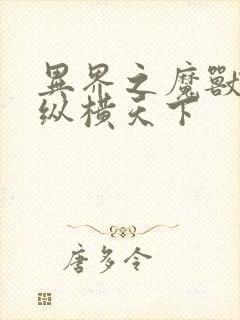 異界之魔獸
纵横天下
唐多令